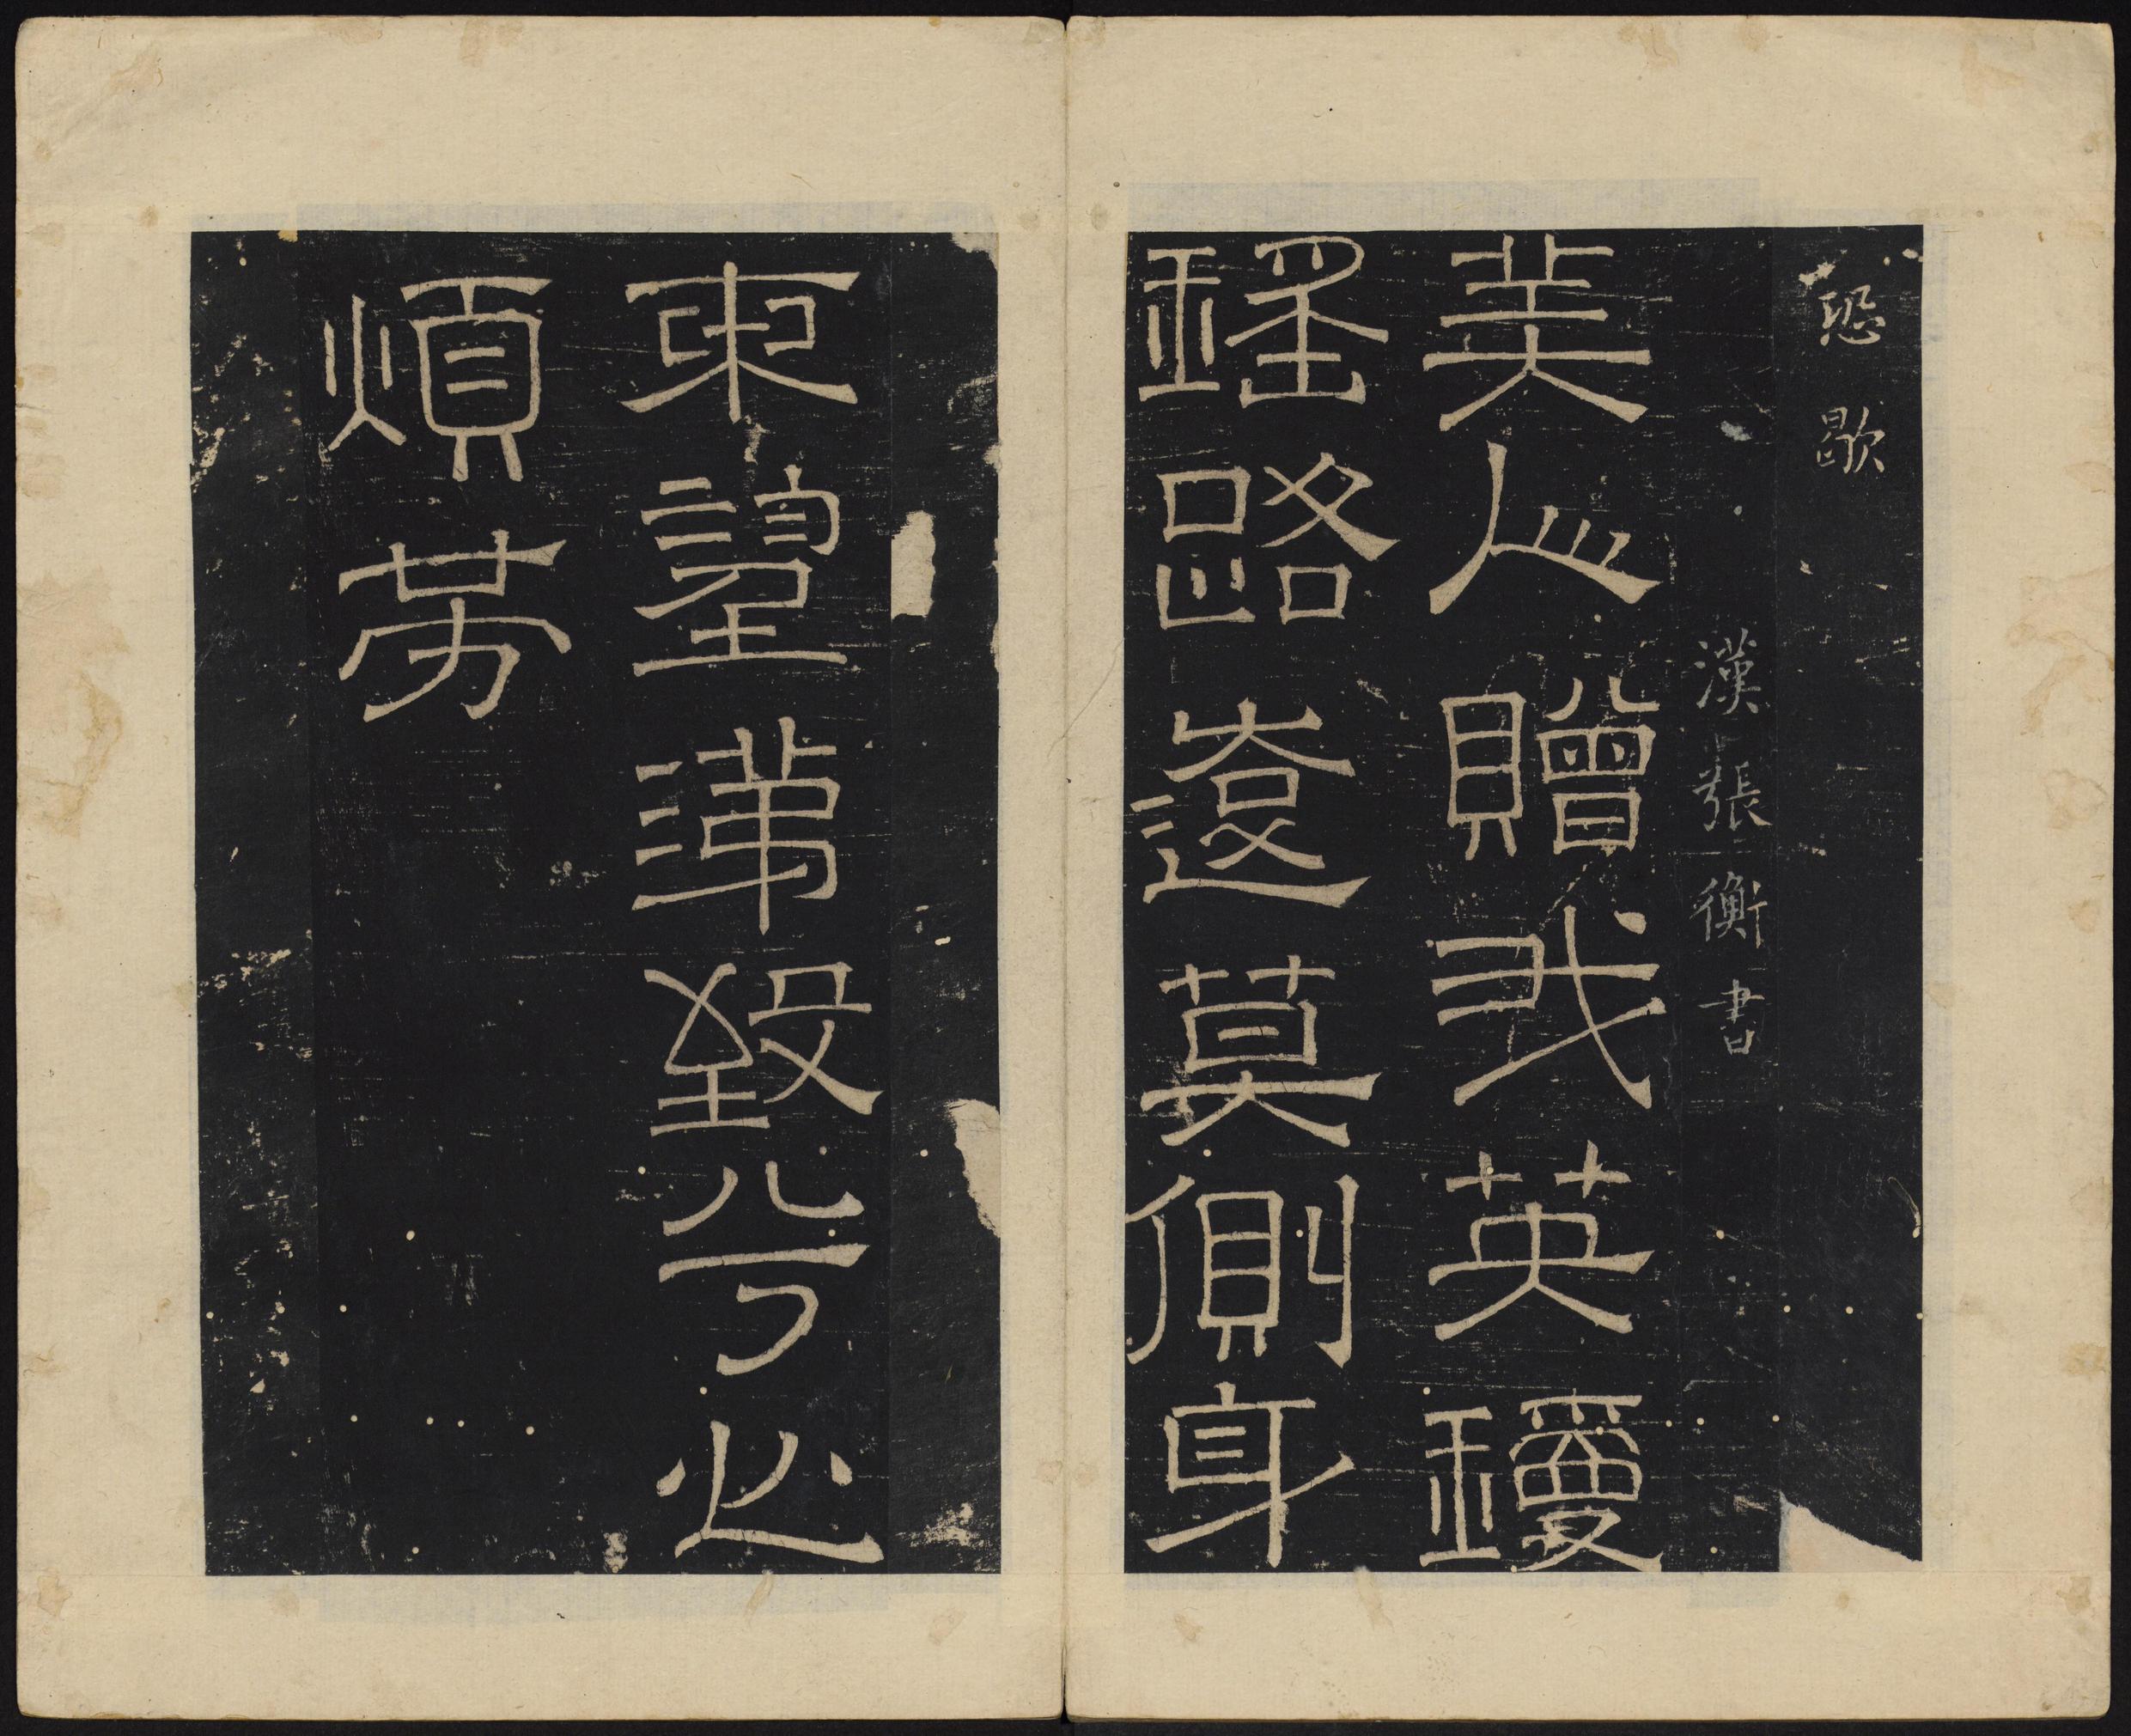 恐歇
漢張衡書
美人贈我英瓊
瑤路遠莫側身
東望涕致兮心
煩勞